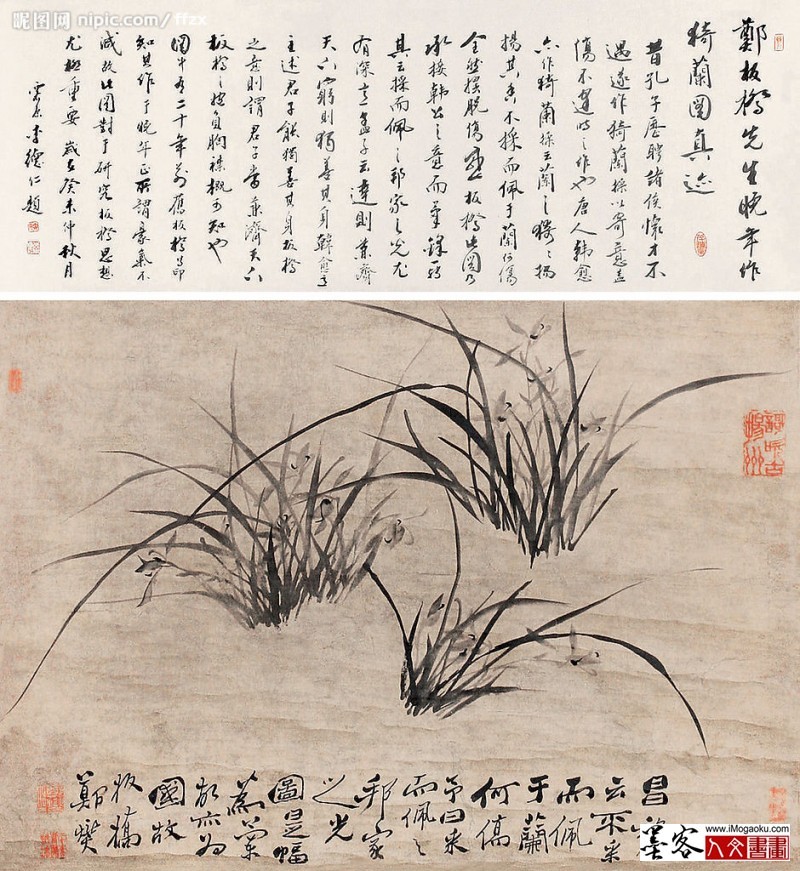 昵图网 nipic.com/ffzx
鄭板橋先生晚年作
猗蘭圖真迹
昔孔子歷聘諸侯懷才不
遇遂作猗蘭操以寄意蓋
傷不逢時之作也唐人韓愈
亦作猗蘭操云蘭之猗〻揚
揚其香不採而佩于蘭何傷
全然擺脫傷感板橋此圖乃
承接韓公之意而筆鋒
其云採而佩之邦家之光尤
有深意孟子云達則兼濟
天下窮則獨善其身韓愈
主述君子能獨善其身板橋
之意則謂君子當兼濟天下
板橋之抱負胸襟概可知也
圖中有二十年前舊板橋印
知其作于晚年正所謂豪氣不
減故此圖對于研究板橋思想
尤極重要 歲在癸未仲秋月
李德仁題
昌
云不采
而佩
于蘭
何傷
予曰采
而佩之
邦家
之光
圖是幅
亦为
國故
板橋
鄭燮
www.iMogaoku.com
墨客人文書畫